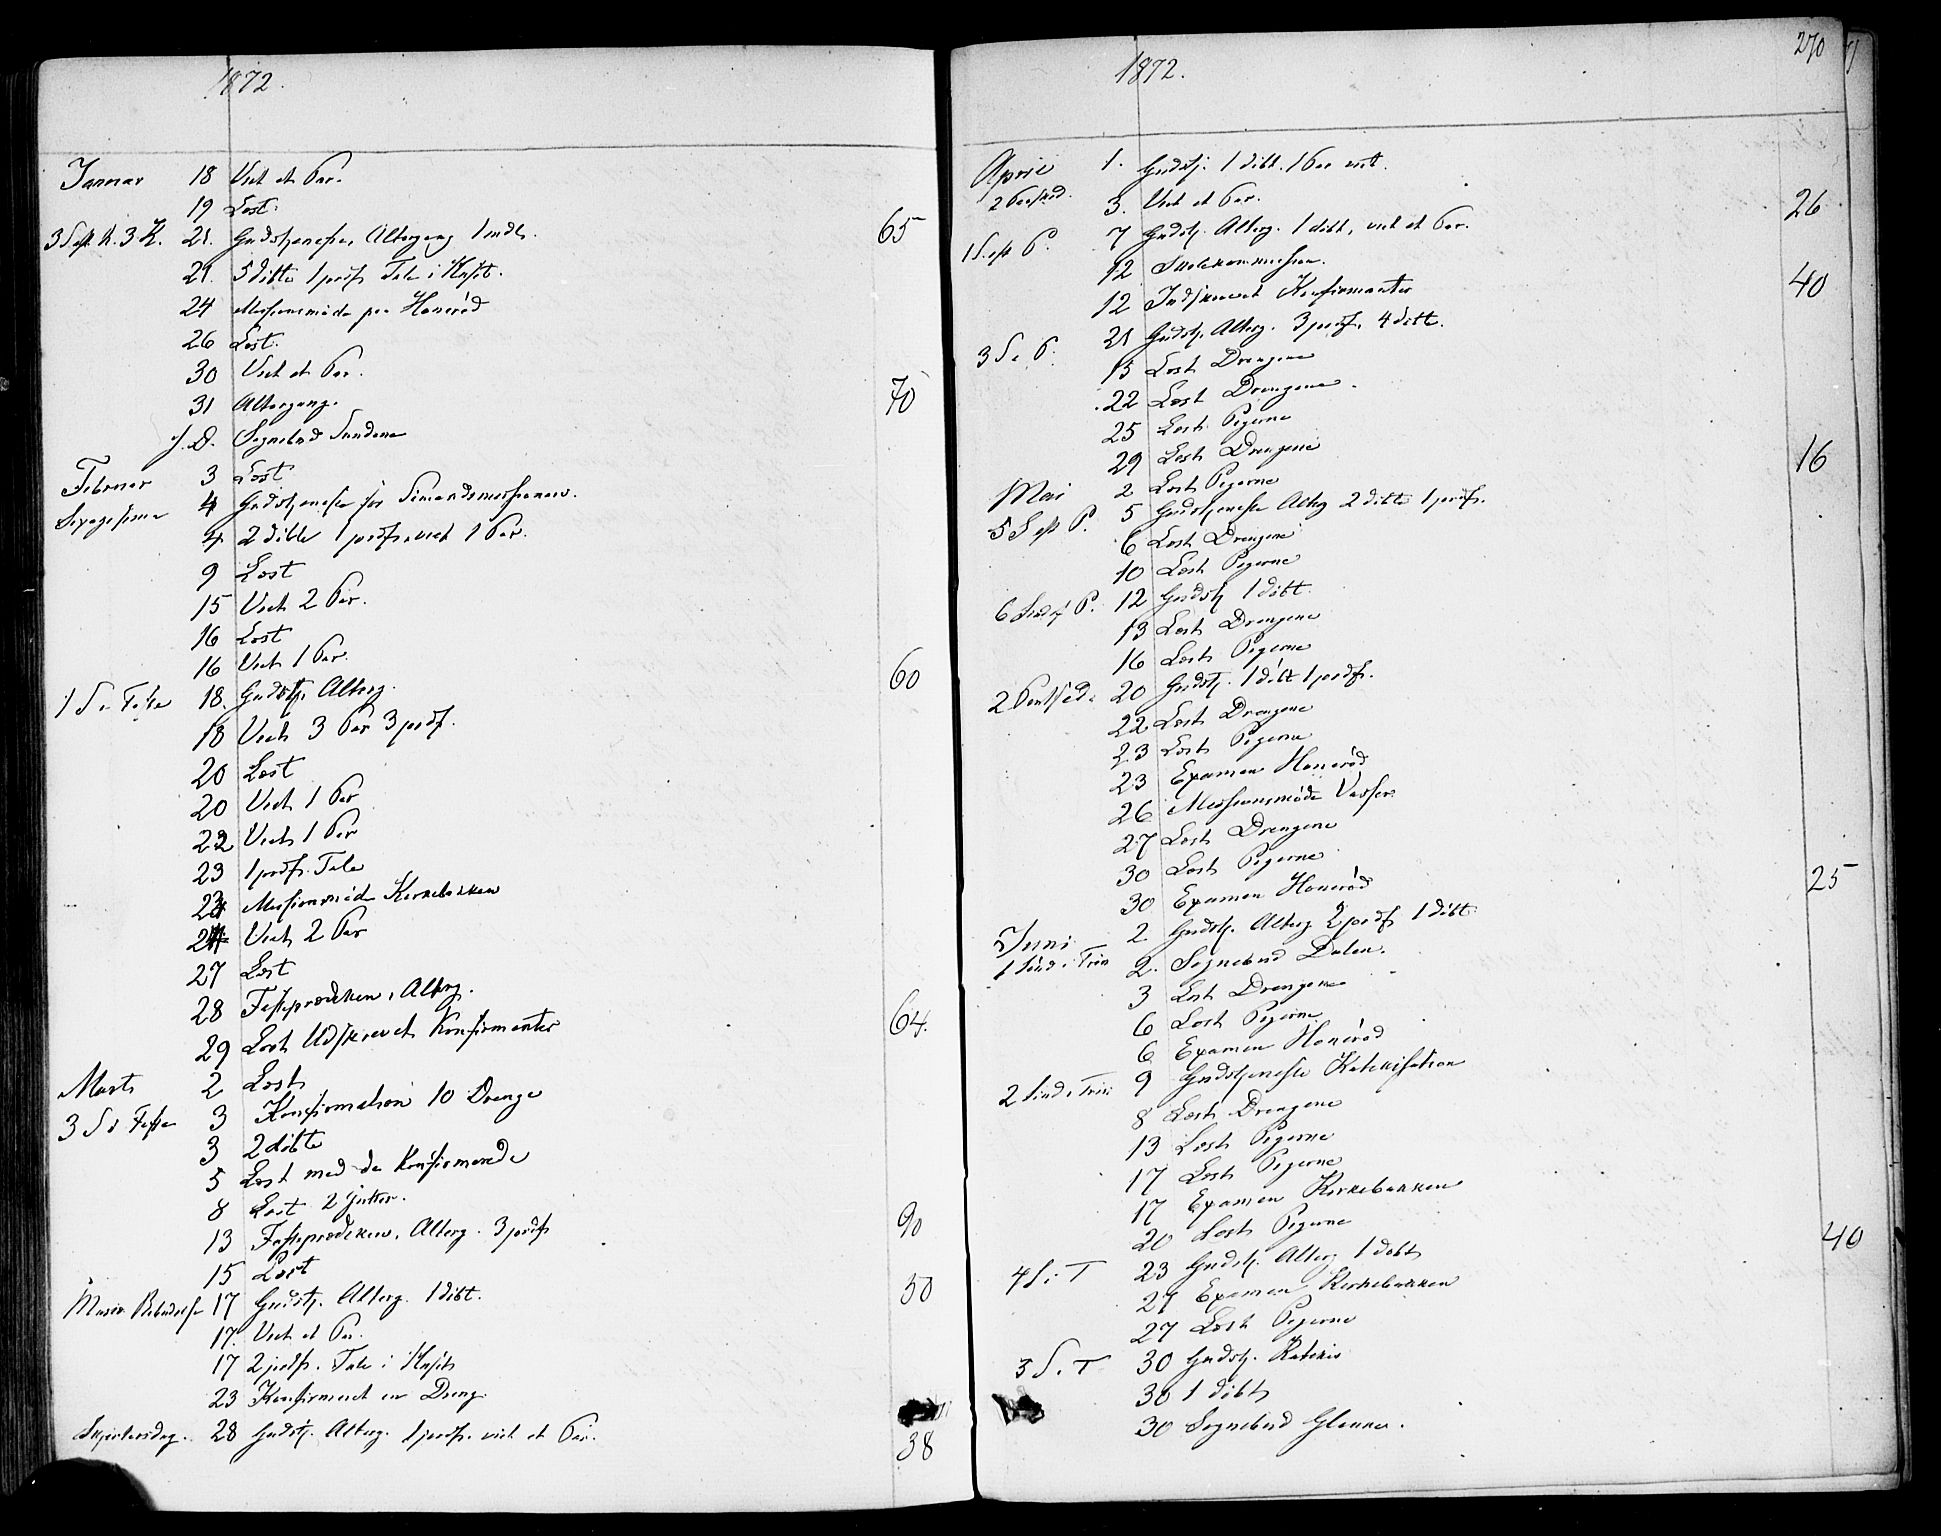 1872.
Januar 18 Viet et Par.
19 Læst.
3 S eft H. 3 K. 21. Gudstjeneste, Altergang 1 indl. 65
21. 5 døbte 1 præs. Tale i Huset.
24 Missionsmøde paa Hanerød
26 Læst.
30 Viet et Par.
31 Altergang. 70
S. D. Sognebud Sundene
Februar 3 Læst
Sexagesima 4 Gudstjeneste for Sømandsmissionen.
4 2 døbte 1 præs. viet 1 Par.
9 Læst
15 Viet 2 Par.
16 Læst
16 Viet 1 Par.
1 S i Faste 18. Gudstj. Alterg. 60
18 Viet 3 Par 3 præs.
20 Læst
20 Viet 1 Par
22 Viet 1 Par
23 1 præs. Tale
24 Missionsmøde Kirkebakken
24 Viet 2 Par
27 Læst
28 Fasteprædiken, Alterg. 64.
29 Læst Udskrevet Konfirmanter
Marts 2 Læst
3 S i Faste 3 Konfirmation 10 Drenge
3 2 døbte
5 Læst med de Konfirmerede
8 Læst 2 Gutter.
13 Fasteprædiken, Alterg. 3 præs 90
15 Læst
Mariæ Bebudelse 17 Gudstj. Alterg. 1 døbt. 50
17. Viet et Par.
17 2 præs. Tale i Huset
23 Konfirmeret en Dreng.
Skjærtorsdag. 28 Gudstj. Alterg. 1 præs. viet et Par. 38
270
1872.
April 1. Gudstj. 1 døbt. 1 Par viet.
2 Paasked. 3. Viet et Par. 26
1 S. eft P. 7 Gudstj. Alterg. 1 døbt, viet et Par.
12 Skolekommission.
12 Indskrevet Konfirmanter 40
3 S. e P. 21 Gudstj. Alterg. 3 præs. 4 døbt.
15 Læst Drengene
22 Læst Drengene.
25 Læst Pigerne
29 Læst Drengene 16
Mai 2 Læst Pigerne
5 S eft P. 5 Gudstjeneste Alterg 2 døbte 1 præs.
6 Læst Drengene
10 Læst Pigerne
6 Send ef P. 12 Gudstj 1 døbt.
13 Læst Drengene
16 Læst Pigerne
2 Pintsed. 20 Gudstj. 1 døbt 1 præs.
22 Læst Drengene
23 Læst Pigerne
23 Examen Hanerød
26 Missionsmøde Vasser.
27 Læst Drengene
30 Læst Pigerne 25
30 Examen Hanerød
Juni 2 Gudstj. Alterg 2 præs 1 døbt
1 Sønd i Trin 2. Sognebud Dalen.
3 Læst Drengene
6 Læst Pigerne
6 Examen Hanerød
2 Sind i Trin 9 Gudstjeneste Katekisation
8 Læst Drengene
13 Læst Pigerne
17 Læst Pigerne
17 Examen Kirkebakken
20 Læst Pigerne 40
4 S. i T 23 Gudstj. Alterg 1 døbt
27 Examen Kirkebakken
27 Læst Pigerne
5 S. i T 30 Gudstj. Katekis
30 1 døbt
30 Sognebud Glenne.